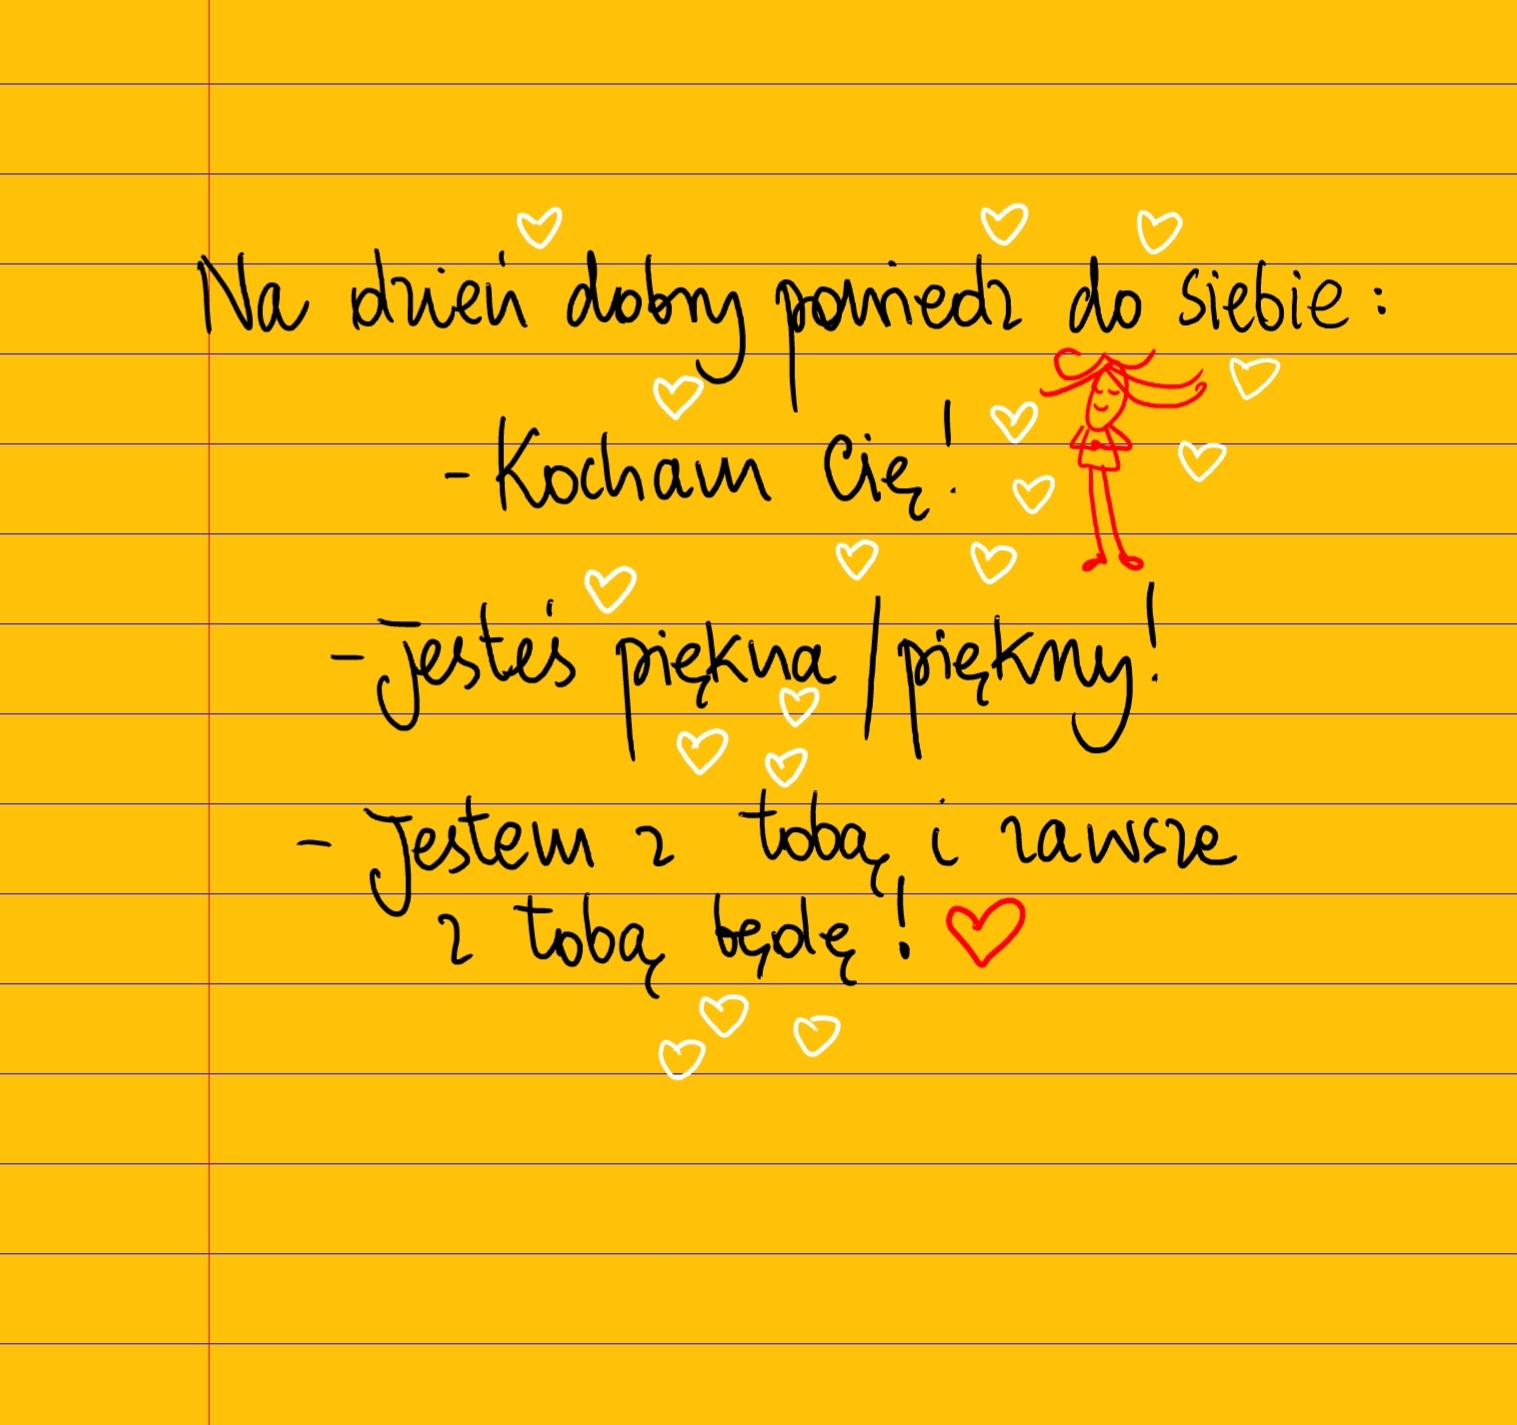 Na dzień dobry powiedz do siebie:
- Kocham Cię!
- Jesteś piękna/piękny!
- Jestem z tobą i zawsze
z tobą będę!